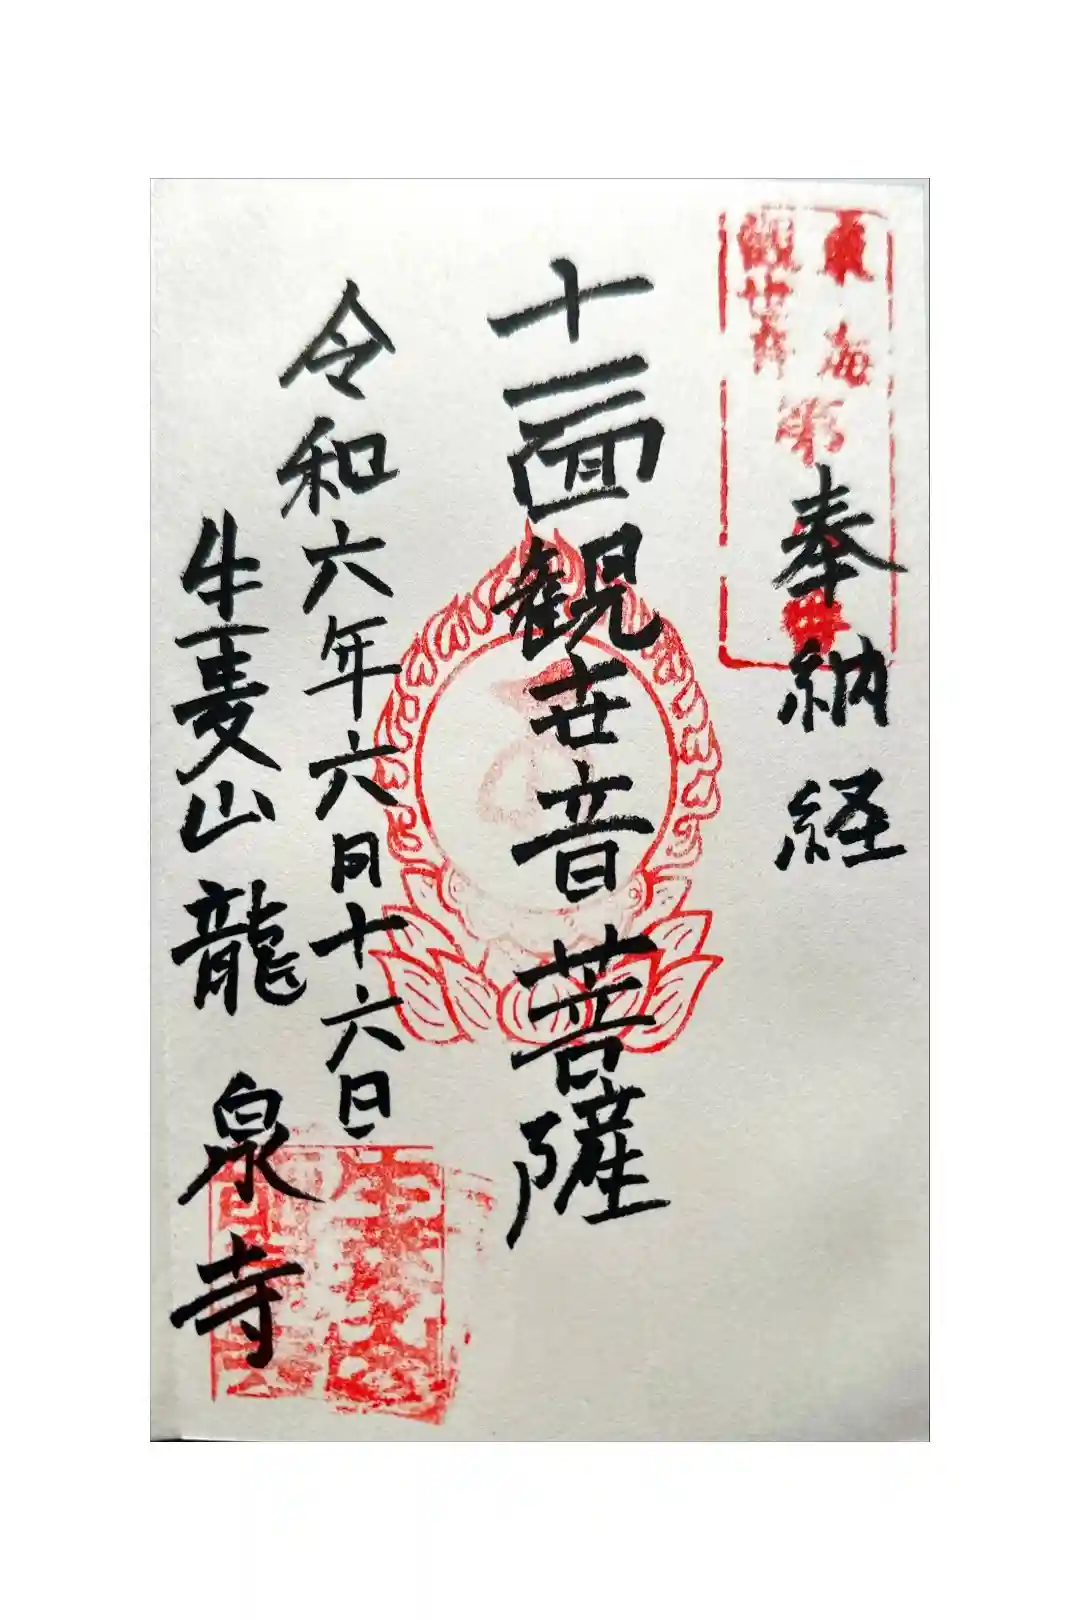 東海
奉納経
十一面観世音菩薩
令和六年六月十六日
生麦山龍泉寺